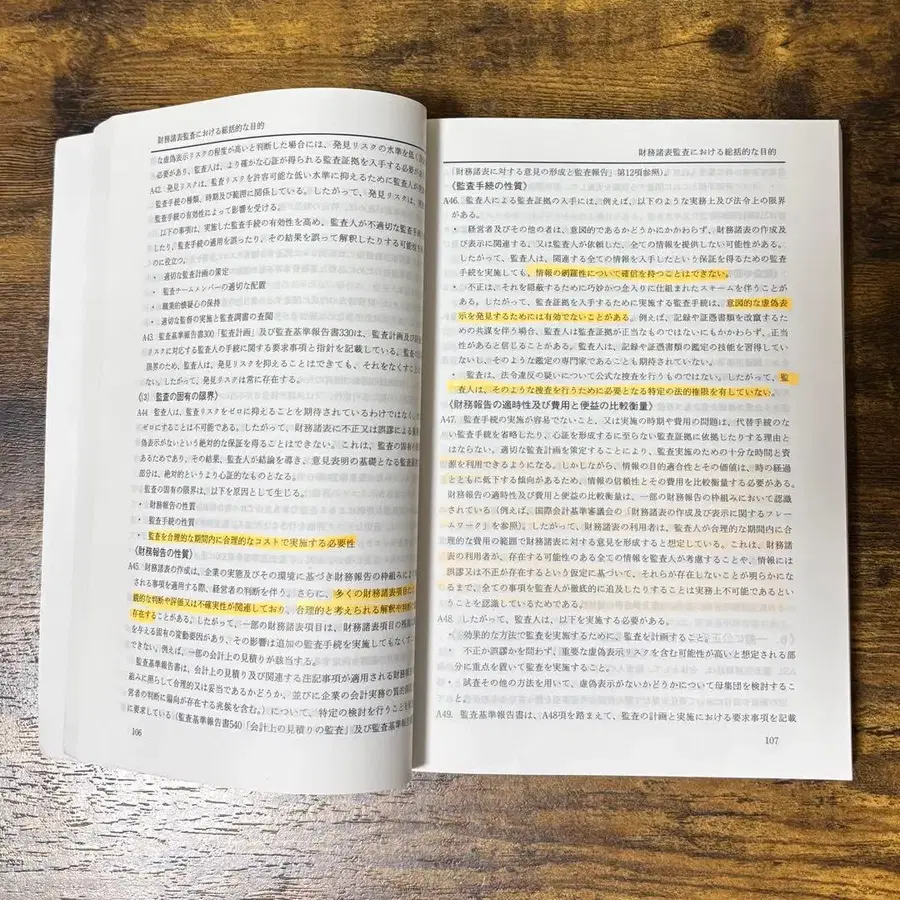 財務諸表監査における総括的な目的
な虚偽表示リスクの程度が高いと判断した場合には、発見リスクの水準を低く
必要があり、監査人は、より確かな心証が得られる監査証拠を入手する必要が
A42. 発見リスクは、監査リスクを許容可能な低い水準に抑えるために監査人が
監査手続の種類、時期及び範囲に関係している。したがって、発見リスクは、
監査手続の有効性によって影響を受ける。
以下の事項は、実施した監査手続の有効性を高め、監査人が不適切な監査手
したり、監査手続の適用を誤ったり、その結果を誤って解釈したりする可能
のに役立つ。
・ 適切な監査計画の策定
・ 監査チームメンバーの適切な配置
・ 職業的懐疑心の保持
・ 適切な監督の実施と監査調書の査閲
A43. 監査基準報告書300「監査計画」及び監査基準報告書330は、監査計画及び
リスクに対応する監査人の手続に関する要求事項と指針を記載している。
限界のため、監査人は、発見リスクを抑えることはできても、それをなくすこと
ない。したがって、発見リスクは常に存在する。
(3) 監査の固有の限界
A44. 監査人は、監査リスクをゼロに抑えることを期待されているわけではなく、
ゼロにすることは不可能である。したがって、財務諸表に不正又は誤謬による
偽表示がないという絶対的な保証を得ることはできない。これは、監査の固有
あるためであり、その結果、監査人が結論を導き、意見表明の基礎となる監査
部分は、絶対的というより心証的なものとなる。
監査の固有の限界は、以下を原因として生じる。
・ 財務報告の性質
・ 監査手続の性質
・ 監査を合理的な期間内に合理的なコストで実施する必要性
《財務報告の性質》
A45. 財務諸表の作成は、企業の実態及びその環境に基づき財務報告の枠組みによ
される事項を適用する際、経営者の判断を伴う。さらに、多くの財務諸表項目
観的な判断や評価又は不確実性が関連しており、合理的と考えられる解釈や判断
存在することがある。したがって、一部の財務諸表項目は、財務諸表項目の残高
を与える固有の変動要因があり、その影響は追加の監査手続を実施してもなくす
できない。例えば、一部の会計上の見積りが該当する。
監査基準報告書は、会計上の見積り及び関連する注記事項が適用される財務報告
組みに照らして合理的又は妥当であるかどうか、並びに企業の会計実務の質的側面
営者の判断に偏向が存在する兆候を含む。)について、特定の検討を行うことを
に要求している(監査基準報告書540「会計上の見積りの監査」及び監査基準報告
106
財務諸表監査における総括的な目的
「財務諸表に対する意見の形成と監査報告」第12項参照)。
《監査手続の性質》
A46. 監査人による監査証拠の入手には、例えば、以下のような実務上及び法令上の限界
がある。
・ 経営者及びその他の者は、意図的であるかどうかにかかわらず、財務諸表の作成及
び表示に関連する、又は監査人が依頼した、全ての情報を提供しない可能性がある。
したがって、監査人は、関連する全ての情報を入手したという保証を得るための監査
手続を実施しても、情報の網羅性について確信を持つことはできない。
・ 不正は、それを隠蔽するために巧妙かつ念入りに仕組まれたスキームを伴うことが
ある。したがって、監査証拠を入手するために実施する監査手続は、意図的な虚偽表
示を発見するためには有効でないことがある。例えば、記録や証憑書類を改竄するた
めの共謀を伴う場合、監査人は監査証拠が正当なものではないにもかかわらず、正当
性があると信じることがある。監査人は、記録や証憑書類の鑑定の技能を習得してい
ないし、そのような鑑定の専門家であることも期待されていない。
・ 監査は、法令違反の疑いについて公式な捜査を行うものではない。したがって、監
査人は、そのような捜査を行うために必要となる特定の法的権限を有していない。
《財務報告の適時性及び費用と便益の比較衡量》
A47. 監査手続の実施が容易でないこと、又は実施の時期や費用の問題は、代替手続のな
い監査手続を省略したり、心証を形成するに至らない監査証拠に依拠したりする理由と
はならない。適切な監査計画を策定することにより、監査実施のための十分な時間と資
源を利用できるようになる。しかしながら、情報の目的適合性とその価値は、時の経過
とともに低下する傾向があるため、情報の信頼性とその費用を比較衡量する必要がある。
財務報告の適時性及び費用と便益の比較衡量は、一部の財務報告の枠組みにおいて認識
されている(例えば、国際会計基準審議会の「財務諸表の作成及び表示に関するフレー
ムワーク」を参照)。したがって、財務諸表の利用者は、監査人が合理的な期間内に合
理的な費用の範囲で財務諸表に対する意見を形成すると想定している。これは、財務諸
表の利用者が、存在する可能性のある全ての情報を監査人が考慮することや、情報には
誤謬又は不正が存在するという仮定に基づいて、それらが存在しないことが明らかにな
るまで、全ての事項を監査人が徹底的に追及したりすることは実務上不可能であるとい
うことを認識しているためである。
A48. したがって、監査人は、以下を実施する必要がある。
・ 効果的な方法で監査を実施するために、監査を計画すること。
・ 不正か誤謬かを問わず、重要な虚偽表示リスクを含む可能性が高いと想定される部
分に重点を置いて監査を実施すること。
・ 試査その他の方法を用いて、虚偽表示がないかどうかについて母集団を検討するこ
と。
A49. 監査基準報告書は、A48項を踏まえて、監査の計画と実施における要求事項を記載
107